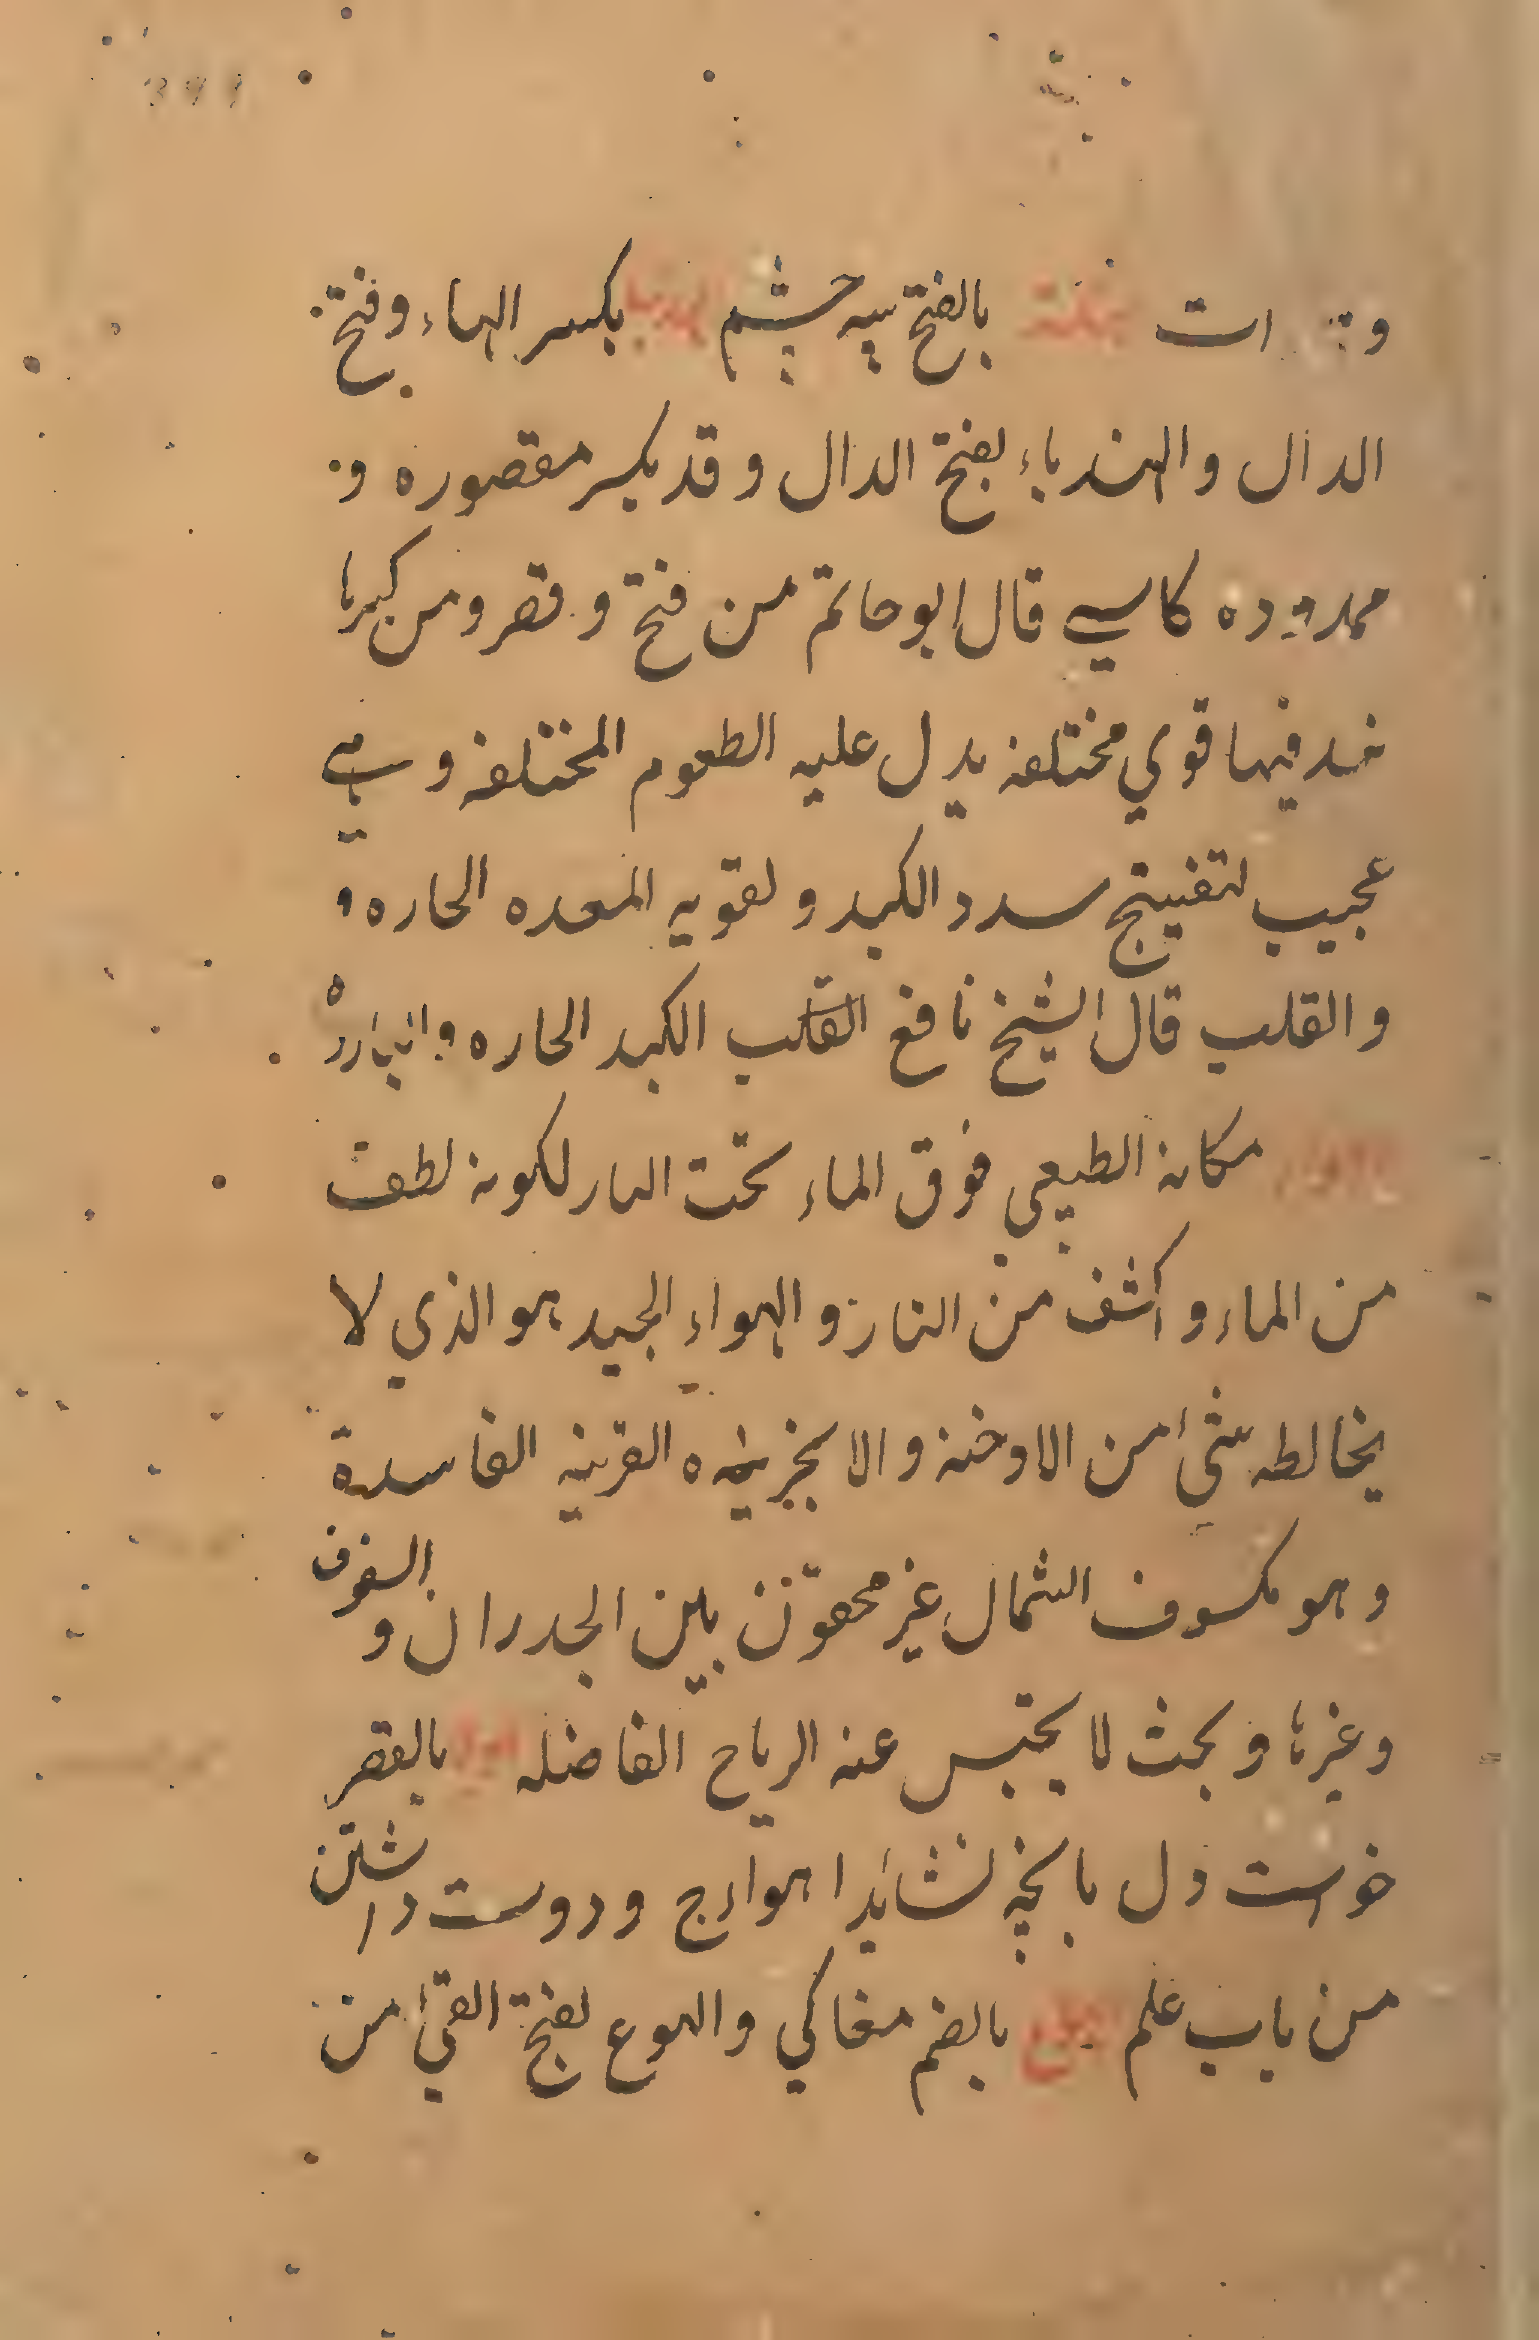 بالفتح سيه چشم بكسر الهاء وفتح
الدال والهندباء بفتح الدال وقد يكسر مقصوره و
ممدوده كاسي قال ابو حاتم من فتح وقصر ومن كسرها
فيها قوي مختلفه يدل عليه الطعوم المختلفه وهي
عجيب لتفيتح سدد الكبد ولقويه المعده الحاره و
والقلب قال الشيخ نافع القلب الكبد الحاره والبارده
مكانه الطبيعي فوق الماء تحت النار لكونه لطف
من الماء واكشف من النار والهواء الجيد هو الذي لا
يخالطه شئ من الادخنه والابخره القريبه الفاسدة
وهو مكسوف الشمال غير محقون بين الجدران والسقوف
وغيرها وبحث لا يحتبس عنه الرياح الفاضله بالقصر
خواست دل بانچه نشايد اهواء ج ودوست داشتن
من باب علم بالضم مغاكي والهوع بفتح القئ من